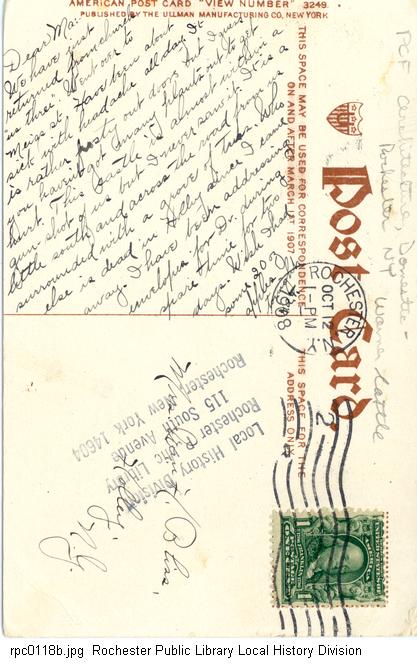 AMERICAN POST CARD "VIEW NUMBER" 3249
PUBLISHED BY THE ULLMAN MANUFACTURING CO, NEW YORK
Dear Ma:
We have just
returned from
us three. Went over to
Meigs St. Have been about
sick with headache all day. It
is rather frosty out doors but I guess
you haven't got many plants out to get
hurt. This castle is almost within a
gun shot of us but I never saw it. It is a
little south and across the road from us
surrounded with a grove of trees. Who
else is dead in Holley since I came
away. I have been addressing
envelopes for Dr. during
spare time for two
days.
some 20
THIS SPACE MAY BE USED FOR CORRESPONDENCE
ON AND AFTER MARCH 1ST 1907
Post Card
THIS SPACE FOR THE
ADDRESS ONLY
PCF Architecture,
Rochester, Domestic -
Warner Castle
ROCHESTER, N.Y.
OCT 12
1-PM
1908
2
Local History Division
Rochester Public Library
115 South Avenue
Rochester, New York 14604
Holley,
N.Y.
1 1
rpc0118b.jpg Rochester Public Library Local History Division